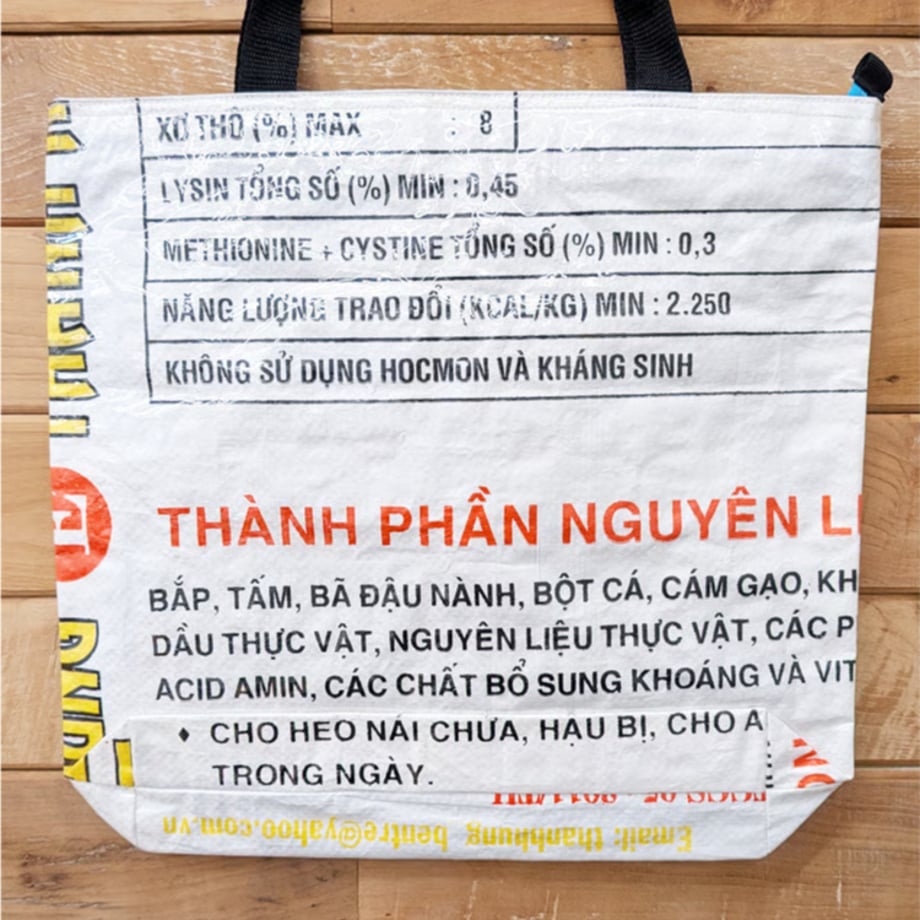 XƠ THÔ (%) MAX : 8
LYSIN TỔNG SỐ (%) MIN : 0,45
METHIONINE + CYSTINE TỔNG SỐ (%) MIN : 0,3
NĂNG LƯỢNG TRAO ĐỔI (KCAL/KG) MIN : 2.250
KHÔNG SỬ DỤNG HOCMON VÀ KHÁNG SINH
THÀNH PHẦN NGUYÊN LI
BẮP, TẤM, BÃ ĐẬU NÀNH, BỘT CÁ, CÁM GẠO, KH
DẦU THỰC VẬT, NGUYÊN LIỆU THỰC VẬT, CÁC P
ACID AMIN, CÁC CHẤT BỔ SUNG KHOÁNG VÀ VIT
♦ CHO HEO NÁI CHỬA, HẬU BỊ, CHO A
TRONG NGÀY.
Email: thanhhung_bentre@yahoo.com.vn